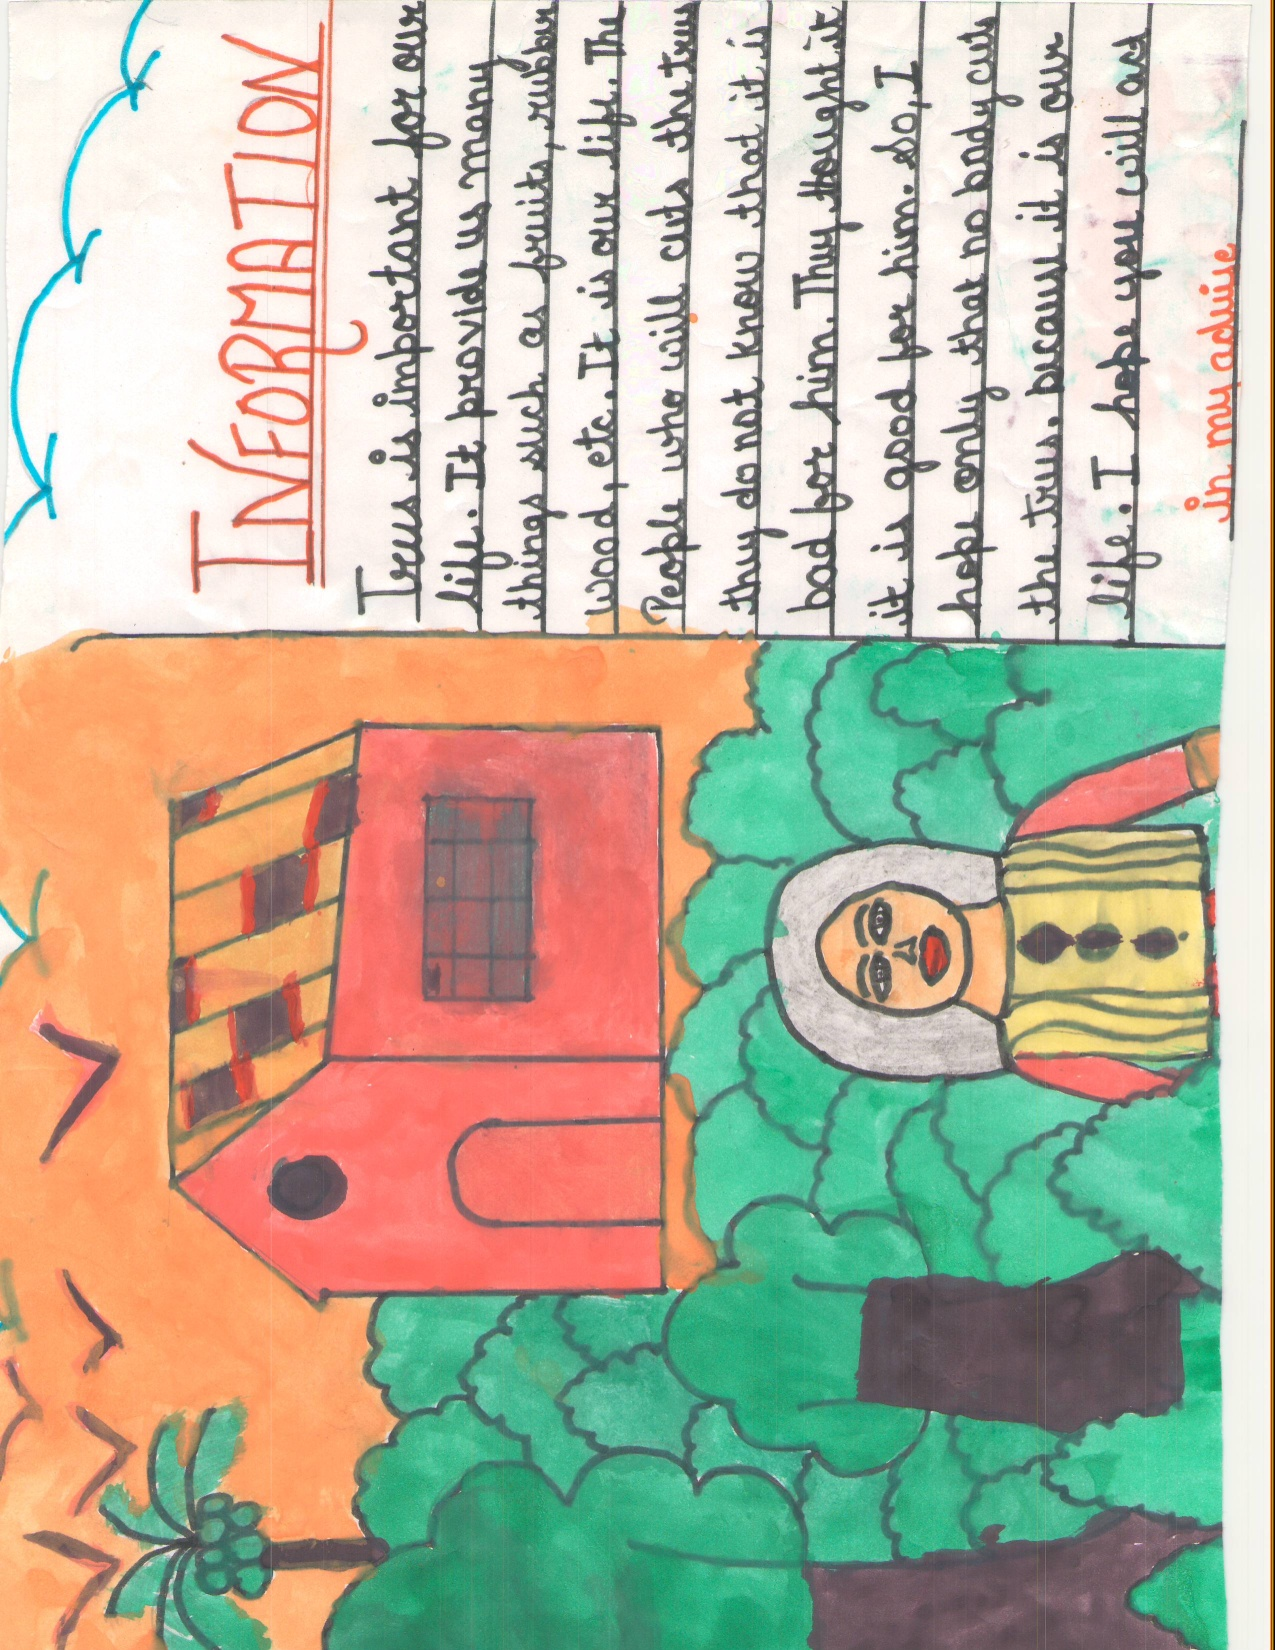 INFORMATION
Trees is important for our
life. It provide us many
things such as fruits, rubber
wood, etc. It is our life. The
People who will cuts the trees
they do not know that it is
bad for him. They thought it
it is good for him. So, I
hope only that no body cuts
the trees. because it is our
life. I hope you will act
in my advise